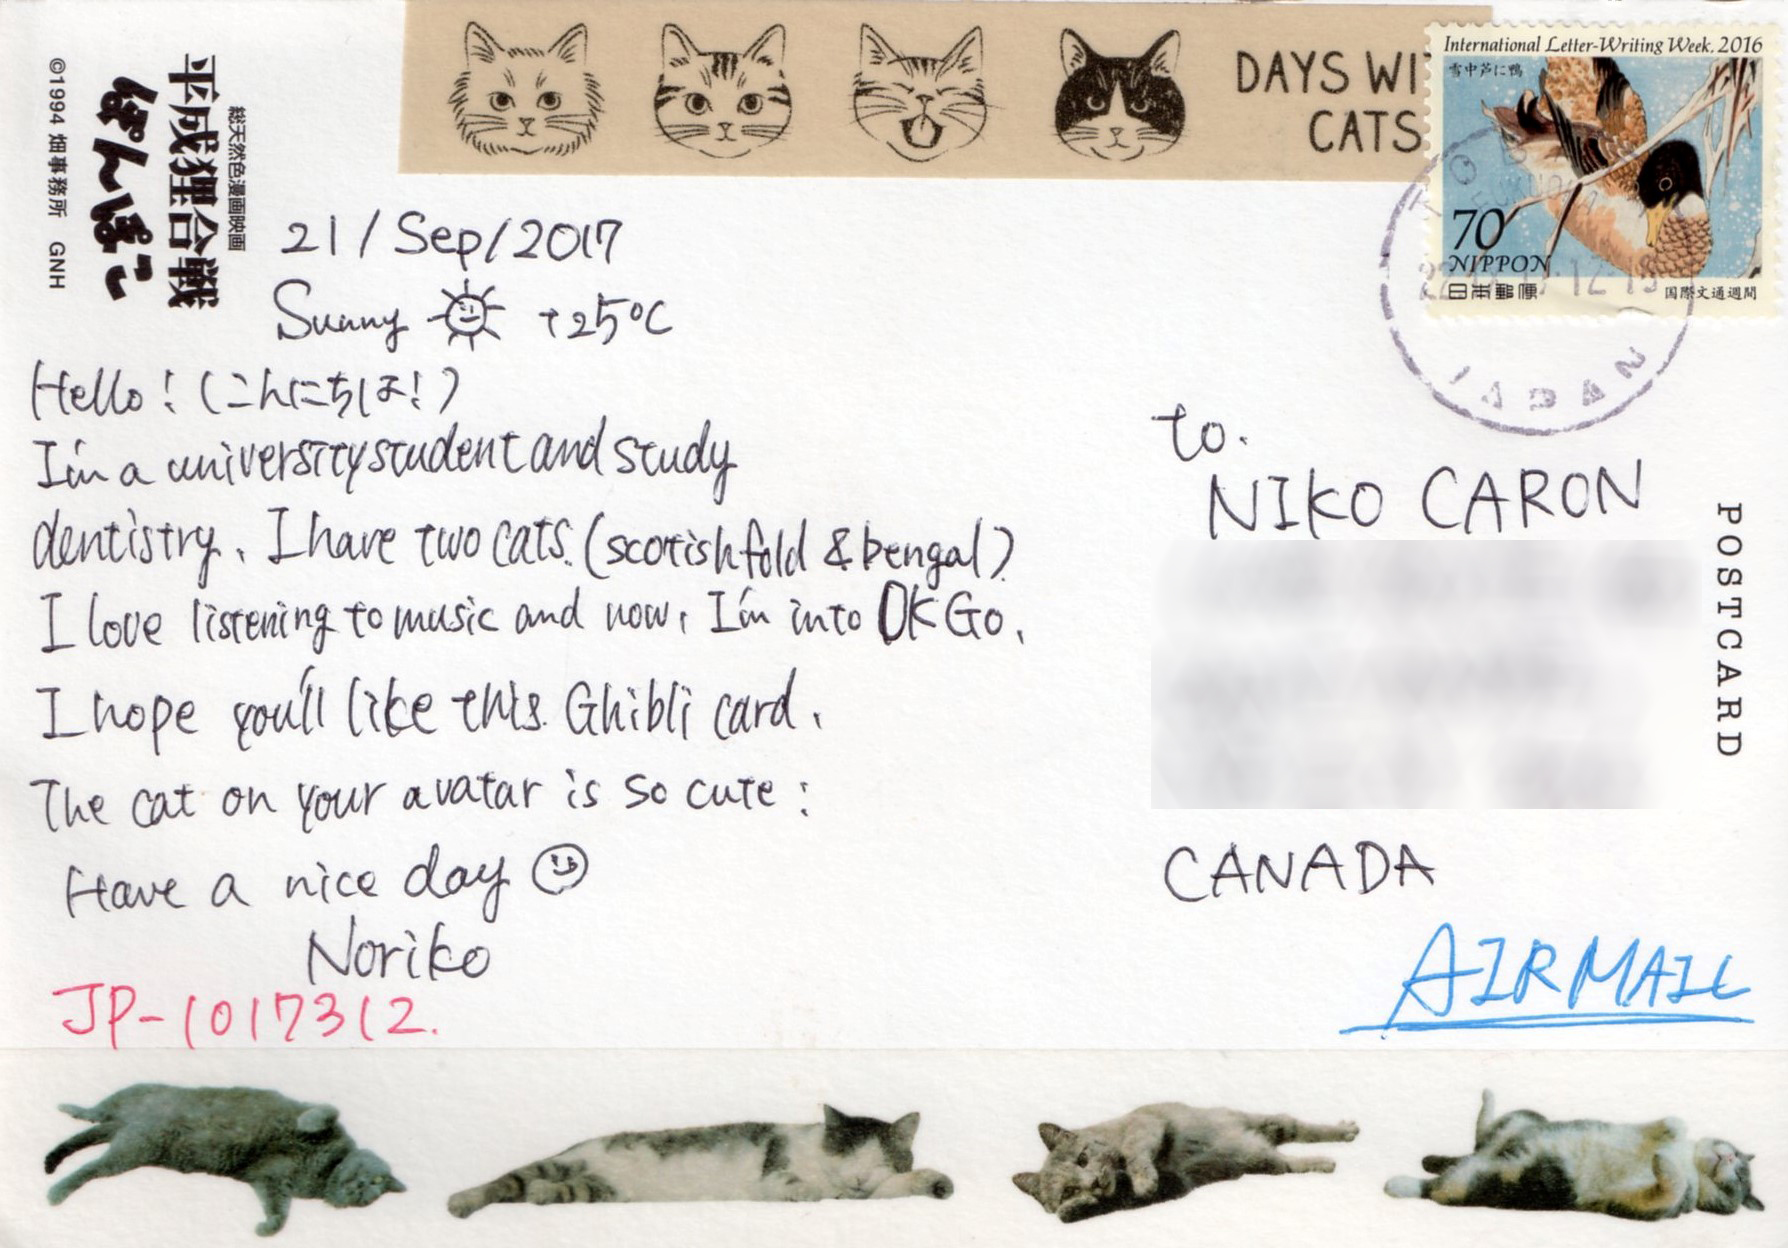 ©1994 畑事務所 GNH
平成狸合戦
ぽんぽこ
総天然色漫画映画
DAYS WI
CATS
International Letter-Writing Week, 2016
雪中芦に鴨
70
NIPPON
日本郵便
国際文通週間
JAPAN
21/Sep/2017
Sunny +25°C
Hello! (こんにちは!)
I'm a university student and study
dentistry. I have two cats. (scotish fold & bengal)
I love listening to music and now, I'm into OK Go.
I hope you'll like this Ghibli card.
The cat on your avatar is so cute :
Have a nice day
Noriko
JP-1017312.
to.
NIKO CARON
CANADA
AIRMAIL
POSTCARD